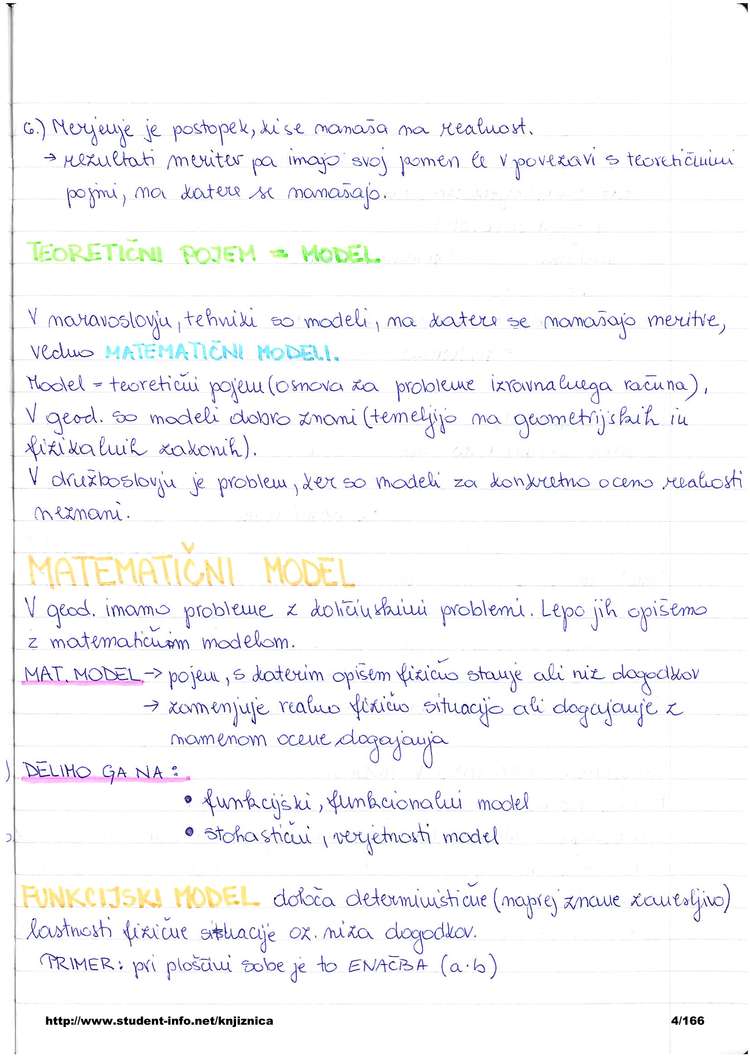 6.) Merjenje je postopek, ki se nanaša na realnost.
→ rezultati meritev pa imajo svoj pomen le v povezavi s teoretičnimi
pojmi, na katere se nanašajo.
TEORETIČNI POJEM = MODEL.
V naravoslovju, tehniki so modeli, na katere se nanašajo meritve,
vedno MATEMATIČNI MODELI.
Model = teoretični pojem (osnova za probleme izravnalnega računa),
V geod. so modeli dobro znani (temeljijo na geometrijskih in
fizikalnih zakonih).
V družboslovju je problem, ker so modeli za konkretno oceno realnosti
neznani.
MATEMATIČNI MODEL
V geod. imamo probleme z količinskimi problemi. Lepo jih opišemo
z matematičnim modelom.
MAT. MODEL → pojem, s katerim opišem fizično stanje ali niz dogodkov
→ zamenjuje realno fizično situacijo ali dogajanje z
namenom ocene dogajanja
) DELIMO GA NA:
• funkcijski, funkcionalni model
• stohastični, verjetnosti model
FUNKCIJSKI MODEL določa deterministične (naprej znane zanesljivo)
lastnosti fizične situacije oz. niza dogodkov.
PRIMER: pri ploščini sobe je to ENAČBA (a·b)
http://www.student-info.net/knjiznica 4/166